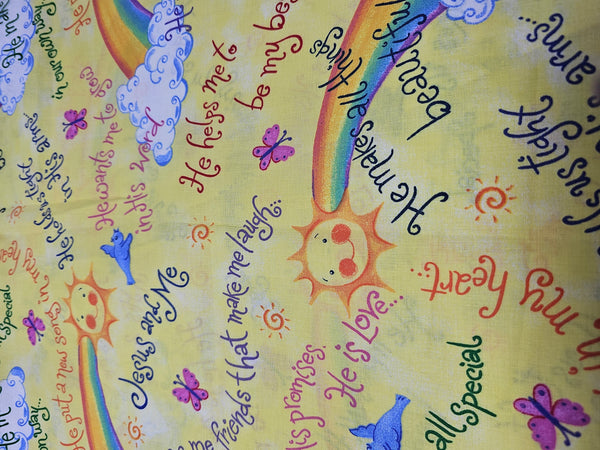 in our own way...
He wants me to grow
in His word
He helps me to
be my best
He makes all things
beautiful
arms...
Jesus tight
He holds us tight
in His arms...
He put a new song in my
Jesus and Me
friends that make me laugh...
His promises
He is Love...
in my
heart...
all special
all special
way...
me